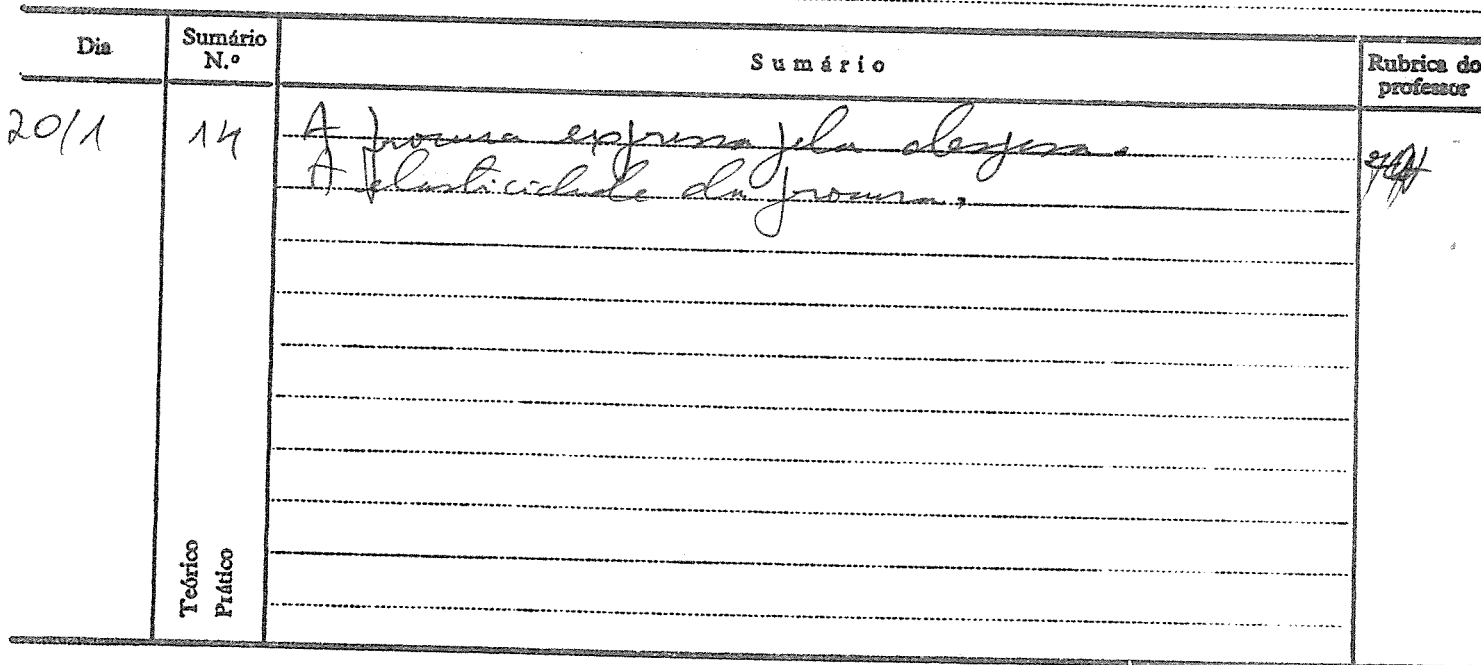 Dia
Sumário N.º
Sumário
Rubrica do professor
20/1
14
A procura expressa pela despesa.
A elasticidade da procura.
Teórico
Prático